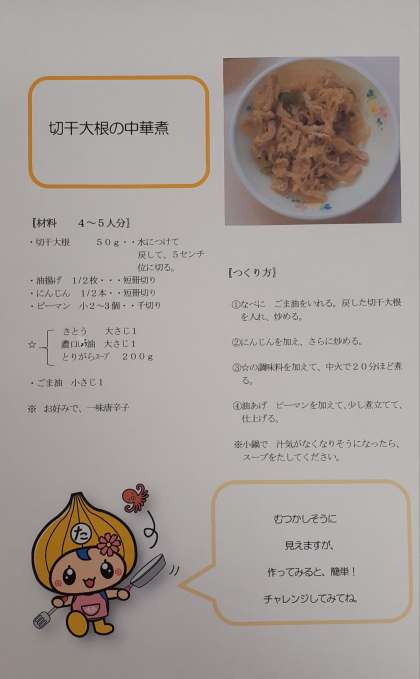 切干大根の中華煮
〖材料　４～５人分〗
・切干大根　　５０ｇ・・水につけて
戻して、５センチ
位に切る。
・油揚げ　１/２枚・・・短冊切り
・にんじん　１/２本・・短冊切り
・ピーマン　小２～３個・・千切り
☆
さとう　　大さじ１
濃口しょう油　大さじ１
とりがらスープ　２００ｇ
・ごま油　小さじ１
※　お好みで、一味唐辛子
〖つくり方〗
①なべに　ごま油をいれる。戻した切干大根
を入れ、炒める。
②にんじんを加え、さらに炒める。
③☆の調味料を加えて、中火で２０分ほど煮
る。
④油あげ　ピーマンを加えて、少し煮立てて、
仕上げる。
※小鍋で　汁気がなくなりそうになったら、
スープをたしてください。
た
むつかしそうに
見えますが、
作ってみると、簡単！
チャレンジしてみてね。